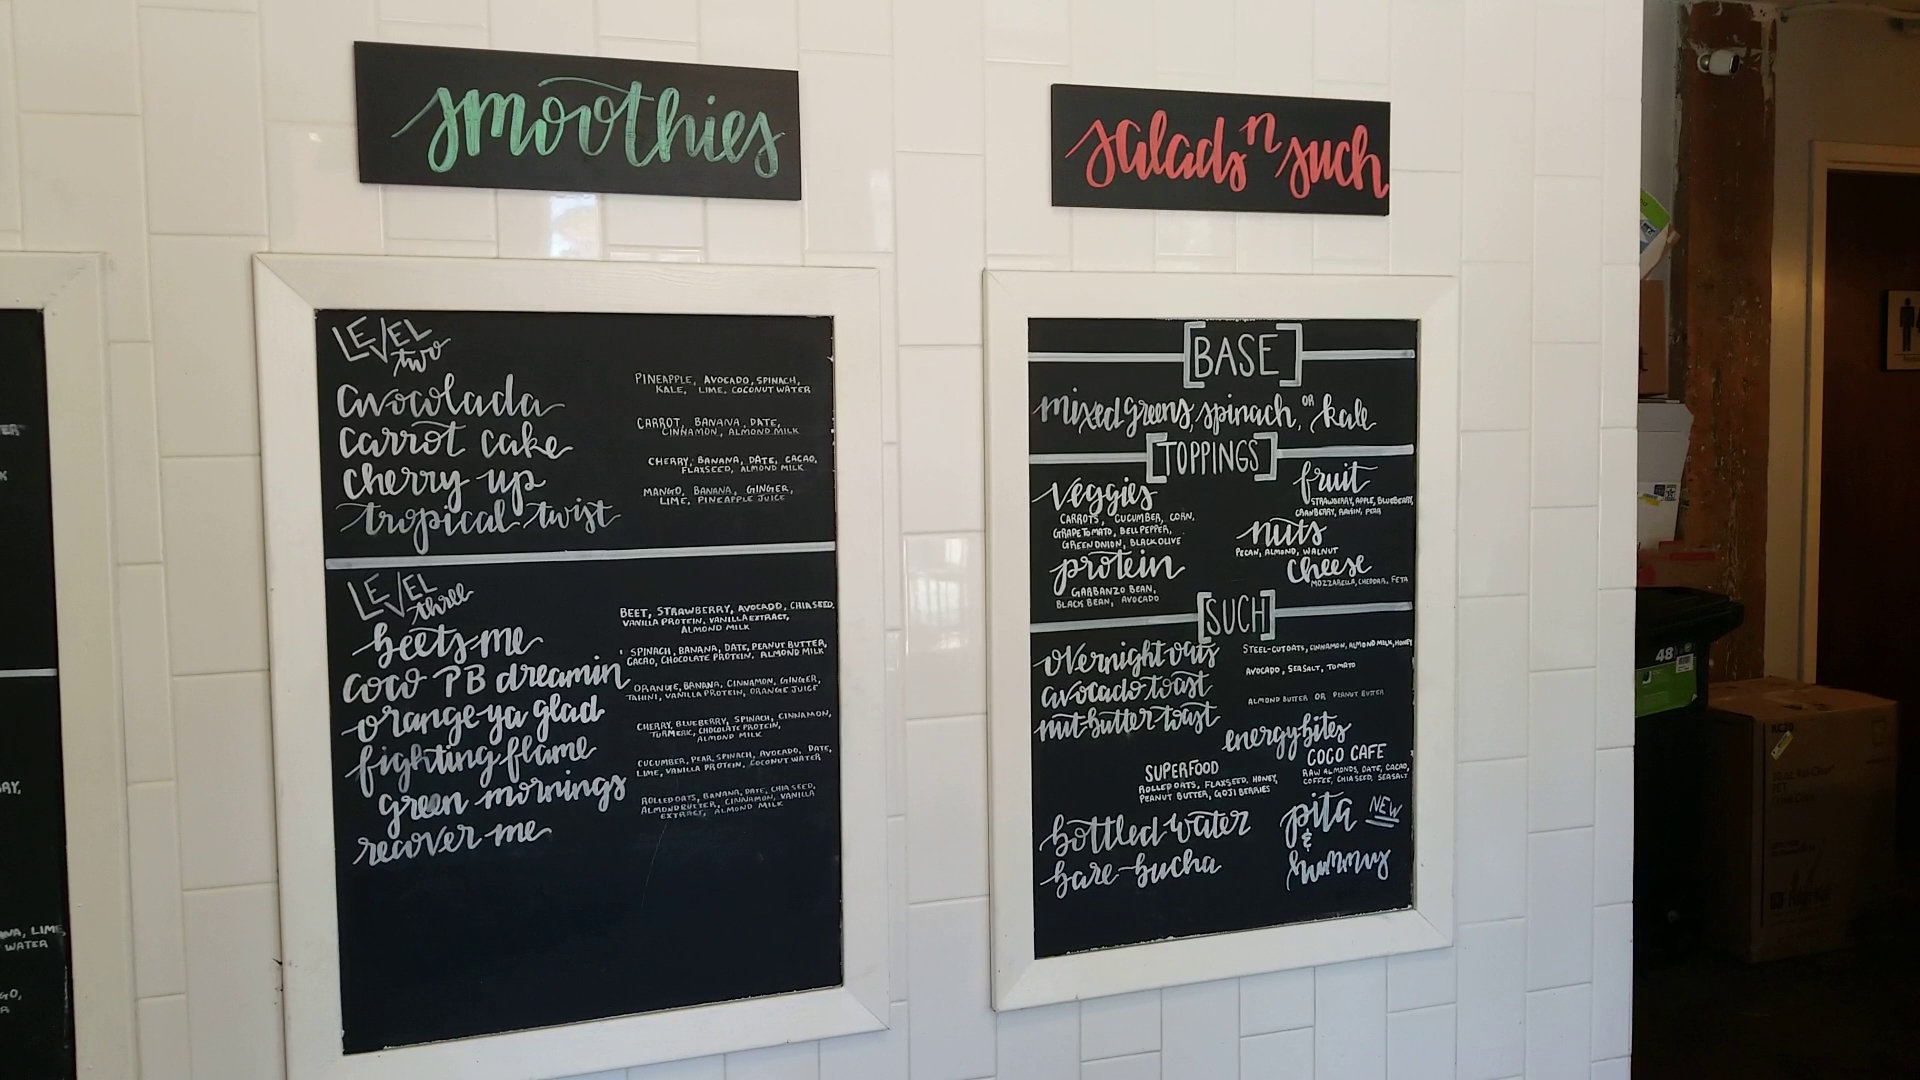 smoothies
LEVEL
two
avocolada
PINEAPPLE, AVOCADO, SPINACH,
KALE, LIME, COCONUT WATER
carrot cake
CARROT, BANANA, DATE,
CINNAMON, ALMOND MILK
cherry up
CHERRY, BANANA, DATE, CACAO,
FLAXSEED, ALMOND MILK
tropical twist
MANGO, BANANA, GINGER,
LIME, PINEAPPLE JUICE
LEVEL
three
beets me
BEET, STRAWBERRY, AVOCADO, CHIA SEED,
VANILLA PROTEIN, VANILLA EXTRACT,
ALMOND MILK
coco PB dreamin
SPINACH, BANANA, DATE, PEANUT BUTTER,
CACAO, CHOCOLATE PROTEIN, ALMOND MILK
orange ya glad
ORANGE, BANANA, CINNAMON, GINGER,
TAHINI, VANILLA PROTEIN, ORANGE JUICE
fighting flame
CHERRY, BLUEBERRY, SPINACH, CINNAMON,
TURMERIC, CHOCOLATE PROTEIN,
ALMOND MILK
green mornings
CUCUMBER, PEAR, SPINACH, AVOCADO, DATE,
LIME, VANILLA PROTEIN, COCONUT WATER
recover me
ROLLED OATS, BANANA, DATE, CHIA SEED,
ALMOND BUTTER, CINNAMON, VANILLA
EXTRACT, ALMOND MILK
salads n such
[BASE]
mixed greens, spinach, OR kale
[TOPPINGS]
veggies
CARROTS, CUCUMBER, CORN,
GRAPE TOMATO, BELL PEPPER,
GREEN ONION, BLACK OLIVE
protein
GARBANZO BEAN,
BLACK BEAN, AVOCADO
fruit
STRAWBERRY, APPLE, BLUEBERRY,
CRANBERRY, RAISIN, PEAR
nuts
PECAN, ALMOND, WALNUT
cheese
MOZZARELLA, CHEDDAR, FETA
[SUCH]
overnight oats
STEEL-CUT OATS, CINNAMON, ALMOND MILK, HONEY
avocado toast
AVOCADO, SEA SALT, TOMATO
nut-butter toast
ALMOND BUTTER OR PEANUT BUTTER
energy-bites
SUPERFOOD
ROLLED OATS, FLAXSEED, HONEY,
PEANUT BUTTER, GOJI BERRIES
COCO CAFE
RAW ALMONDS, DATE, CACAO,
COFFEE, CHIA SEED, SEA SALT
bottled water
bare-bucha
pita NEW
&
hummus
LIME,
WATER
48